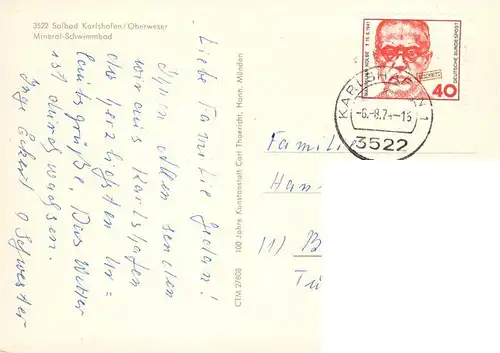 3522 Solbad Karlshafen/Oberweser
Mineral-Schwimmbad
Liebe Familie Gedan!
Ihnen allen senden
wir aus Karlshafen
die herzlichsten Ur=
laubsgrüße. Das Wetter
ist durchwachsen.
Inge Eckert u Schwester
CTM 27808 100 Jahre Kunstanstalt Carl Thoericht, Hann. Münden
MAXIMILIAN KOLBE
DEUTSCHE BUNDESPOST
40
KARLSHAFEN 1
-6.-8.74-16
3522
Familie
Han
(1) B